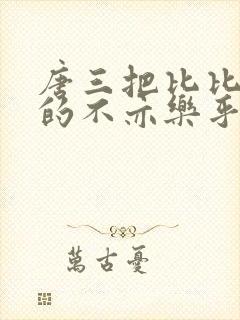 唐三把比比
的不亦樂乎
萬古憂